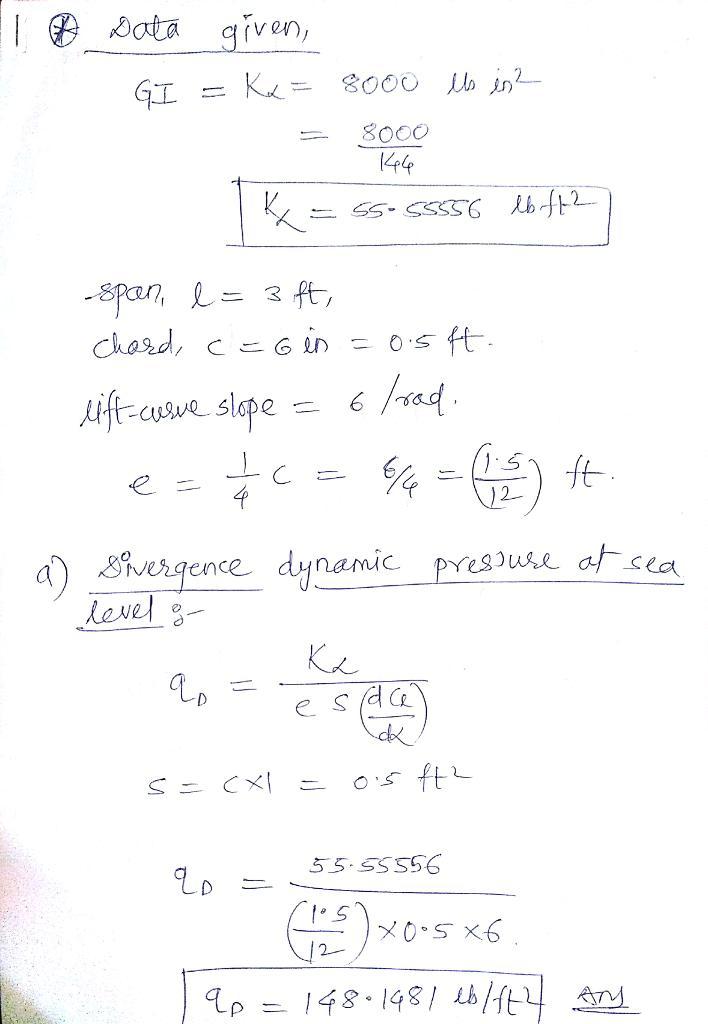 1 * Data given,
GI = Kα = 8000 lb in²
= 8000/144
Kα = 55.55556 lb-ft²
span, l = 3 ft,
chord, c = 6 in = 0.5 ft.
lift-curve slope = 6 /rad.
e = 1/4 c = 6/4 = (1.5/12) ft.
a) Divergence dynamic pressure at sea
level :-
qD = Kα / e s (dCe/dα)
S = c×1 = 0.5 ft²
qD = 55.55556 / (1.5/12) × 0.5 × 6.
qD = 148.1481 lb/ft² Ans